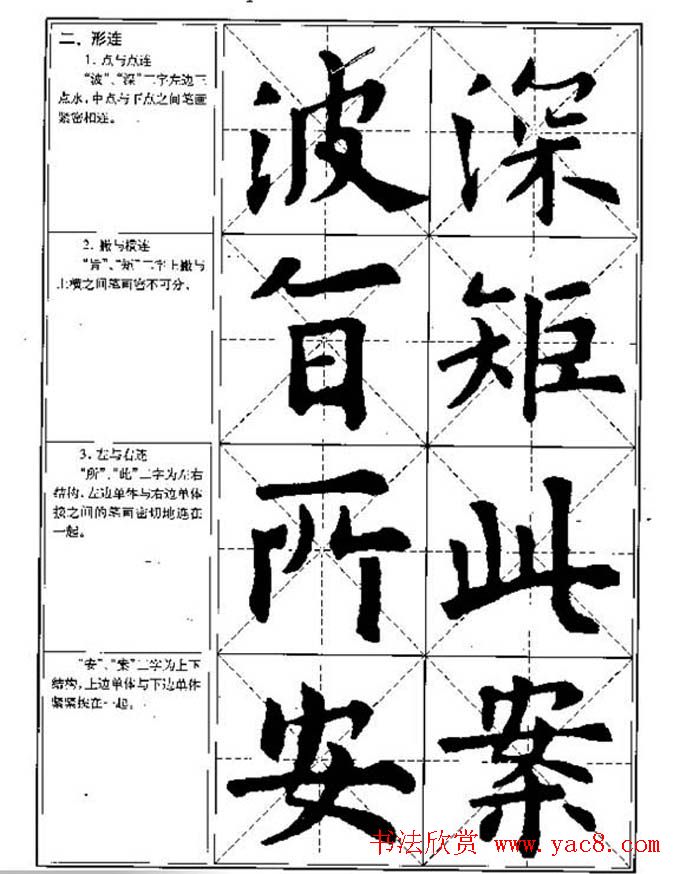 二、形连
1. 点与点连
“波”、“深”二字左边三
点水，中点与下点之间笔画
紧密相连。
波 深
2. 撇与横连
“旨”、“矩”二字上撇与
上横之间笔画密不可分。
旨 矩
3. 左与右连
“所”、“此”二字为左右
结构，左边单体与右边单体
接之间的笔画密切地连在
一起。
所 此
“安”、“案”二字为上下
结构，上边单体与下边单体
紧紧挨在一起。
安 案
书法欣赏 www.yac8.com